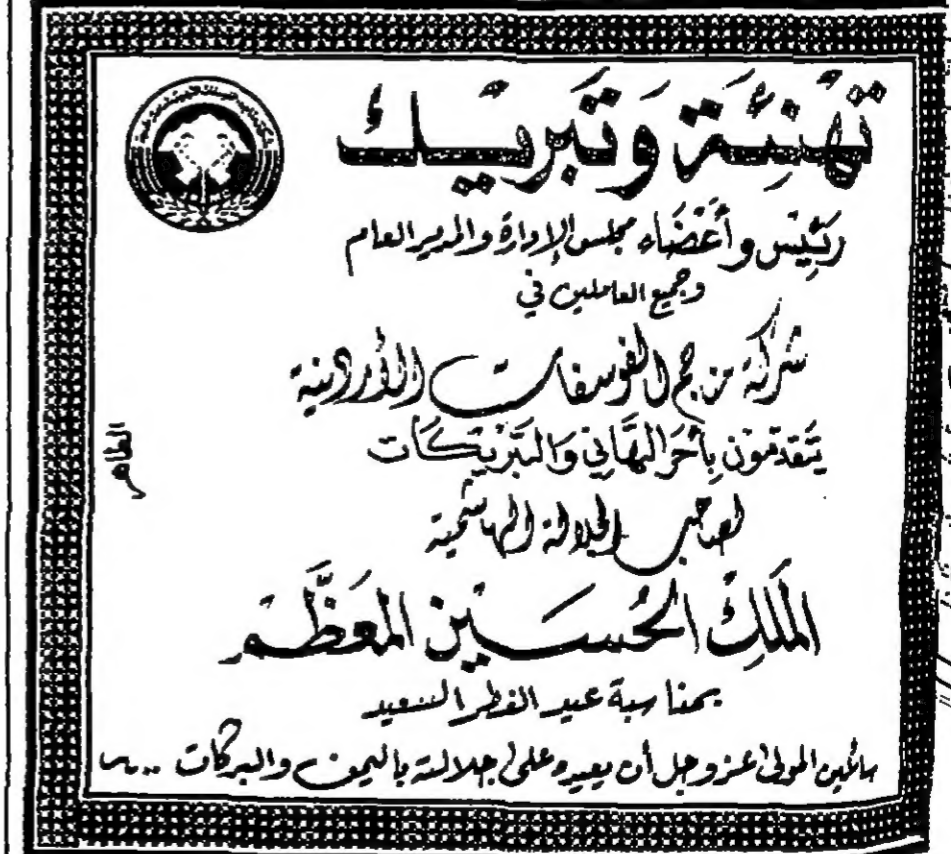 تهنئة وتبريك
رئيس وأعضاء مجلس الإدارة والمدير العام
وجميع العاملين في
شركة مناجم الفوسفات الأردنية
يتقدمون بأحر التهاني والتبريكات
لصاحب الجلالة الهاشمية
الملك الحسين المعظم
بمناسبة عيد الفطر السعيد
سائلين المولى عز وجل أن يعيده على جلالته باليمن والبركات ..